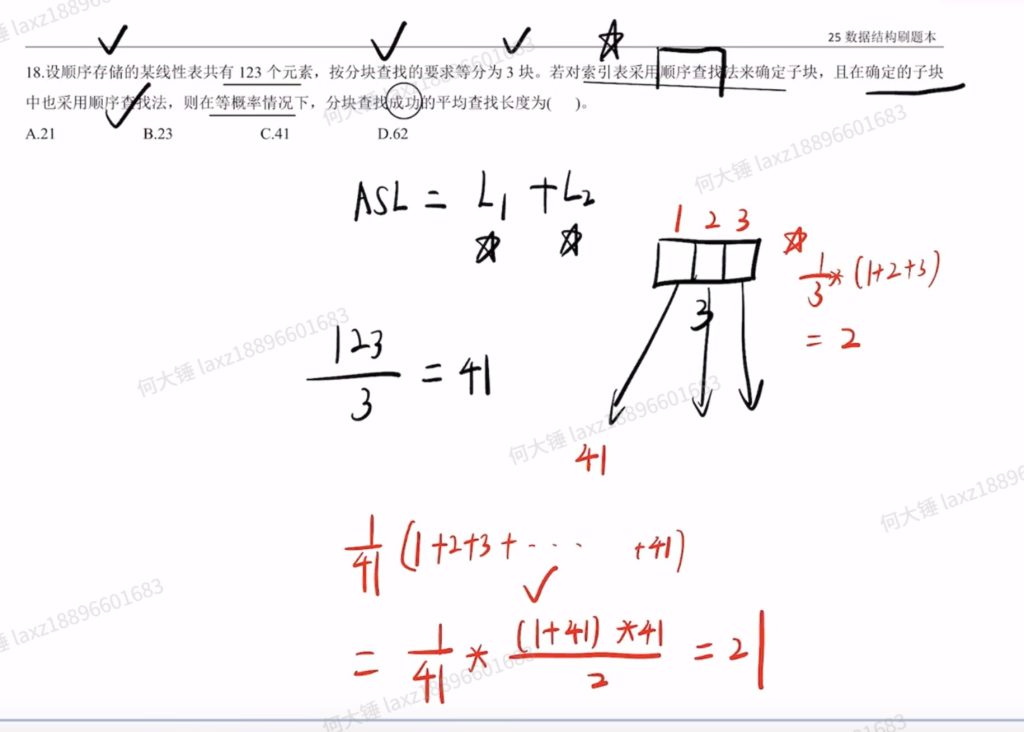 何大锤 laxz18896601683
25 数据结构刷题本
18.设顺序存储的某线性表共有 123 个元素，按分块查找的要求等分为 3 块。若对索引表采用顺序查找法来确定子块，且在确定的子块
中也采用顺序查找法，则在等概率情况下，分块查找成功的平均查找长度为( )。
A.21 B.23 C.41 D.62
何大锤 laxz18896601683
何大锤 laxz18896601683
ASL = L1 + L2
1 2 3
1/3 * (1+2+3)
= 2
3
123/3 = 41
何大锤 laxz18896601683
何大锤 laxz18896601683
41
何大锤 laxz18896601683
1/41 (1+2+3+... +41)
= 1/41 * (1+41)*41/2 = 21
laxz18896601683
何大锤 laxz18896601683